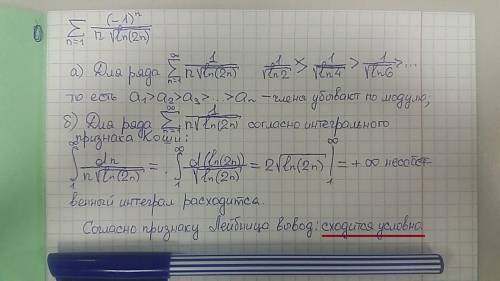 ∑_{n=1} (-1)^n / (n√ln(2n))
а) Для ряда ∑_{n=1}^∞ 1/(n√ln(2n)) 1/√ln2 > 1/√ln4 > 1/√ln6 > ...
то есть a₁>a₂>a₃>...>aₙ – члены убывают по модулю;
б) Для ряда ∑_{n=1}^∞ 1/(n√ln(2n)) согласно интегрального
признака Коши:
∫₁^∞ dn/(n√ln(2n)) = ∫₁^∞ d(ln(2n))/√ln(2n) = 2√ln(2n) |₁^∞ = +∞ несобст
венный интеграл расходится.
Согласно признаку Лейбница вывод: сходится условно